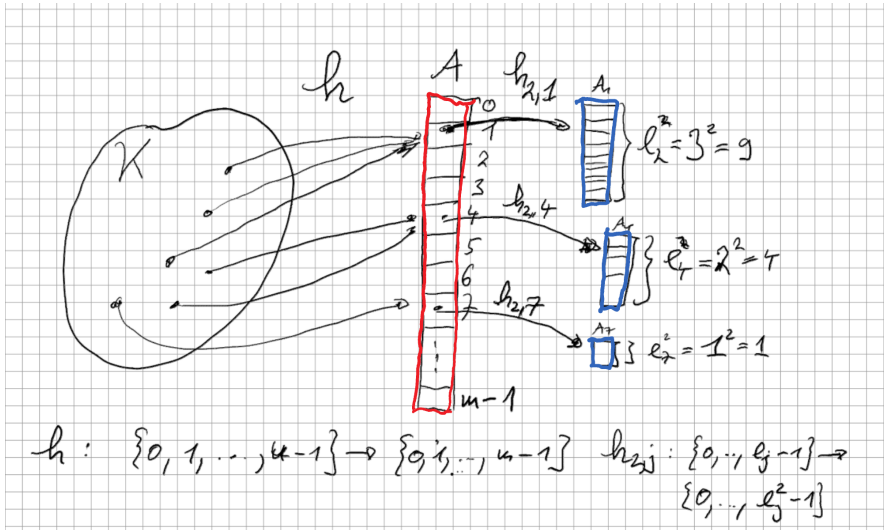 h A h₂,₁ A₁
K
0
1
2
3
4
5
6
7
m-1
l₂² = 3² = 9
h₂,₄
l₄² = 2² = 4
h₂,₇ A₇
l₇² = 1² = 1
h : {0, 1, ..., u-1} → {0, 1, ..., m-1} h₂,j : {0, .., lj-1} →
{0, .., lj²-1}